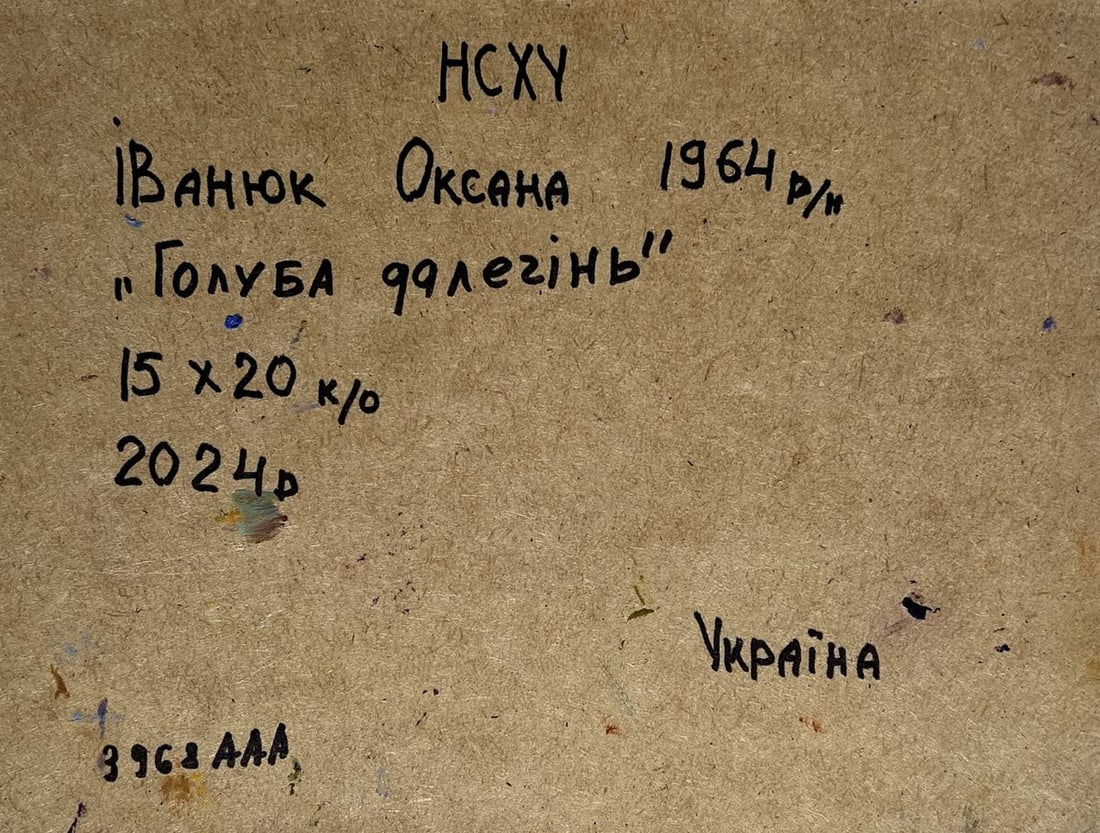 НСХУ
Іванюк Оксана 1964 р/н
„Голуба далегінь"
15 х 20 к/о
2024р
Україна
3968 ААА